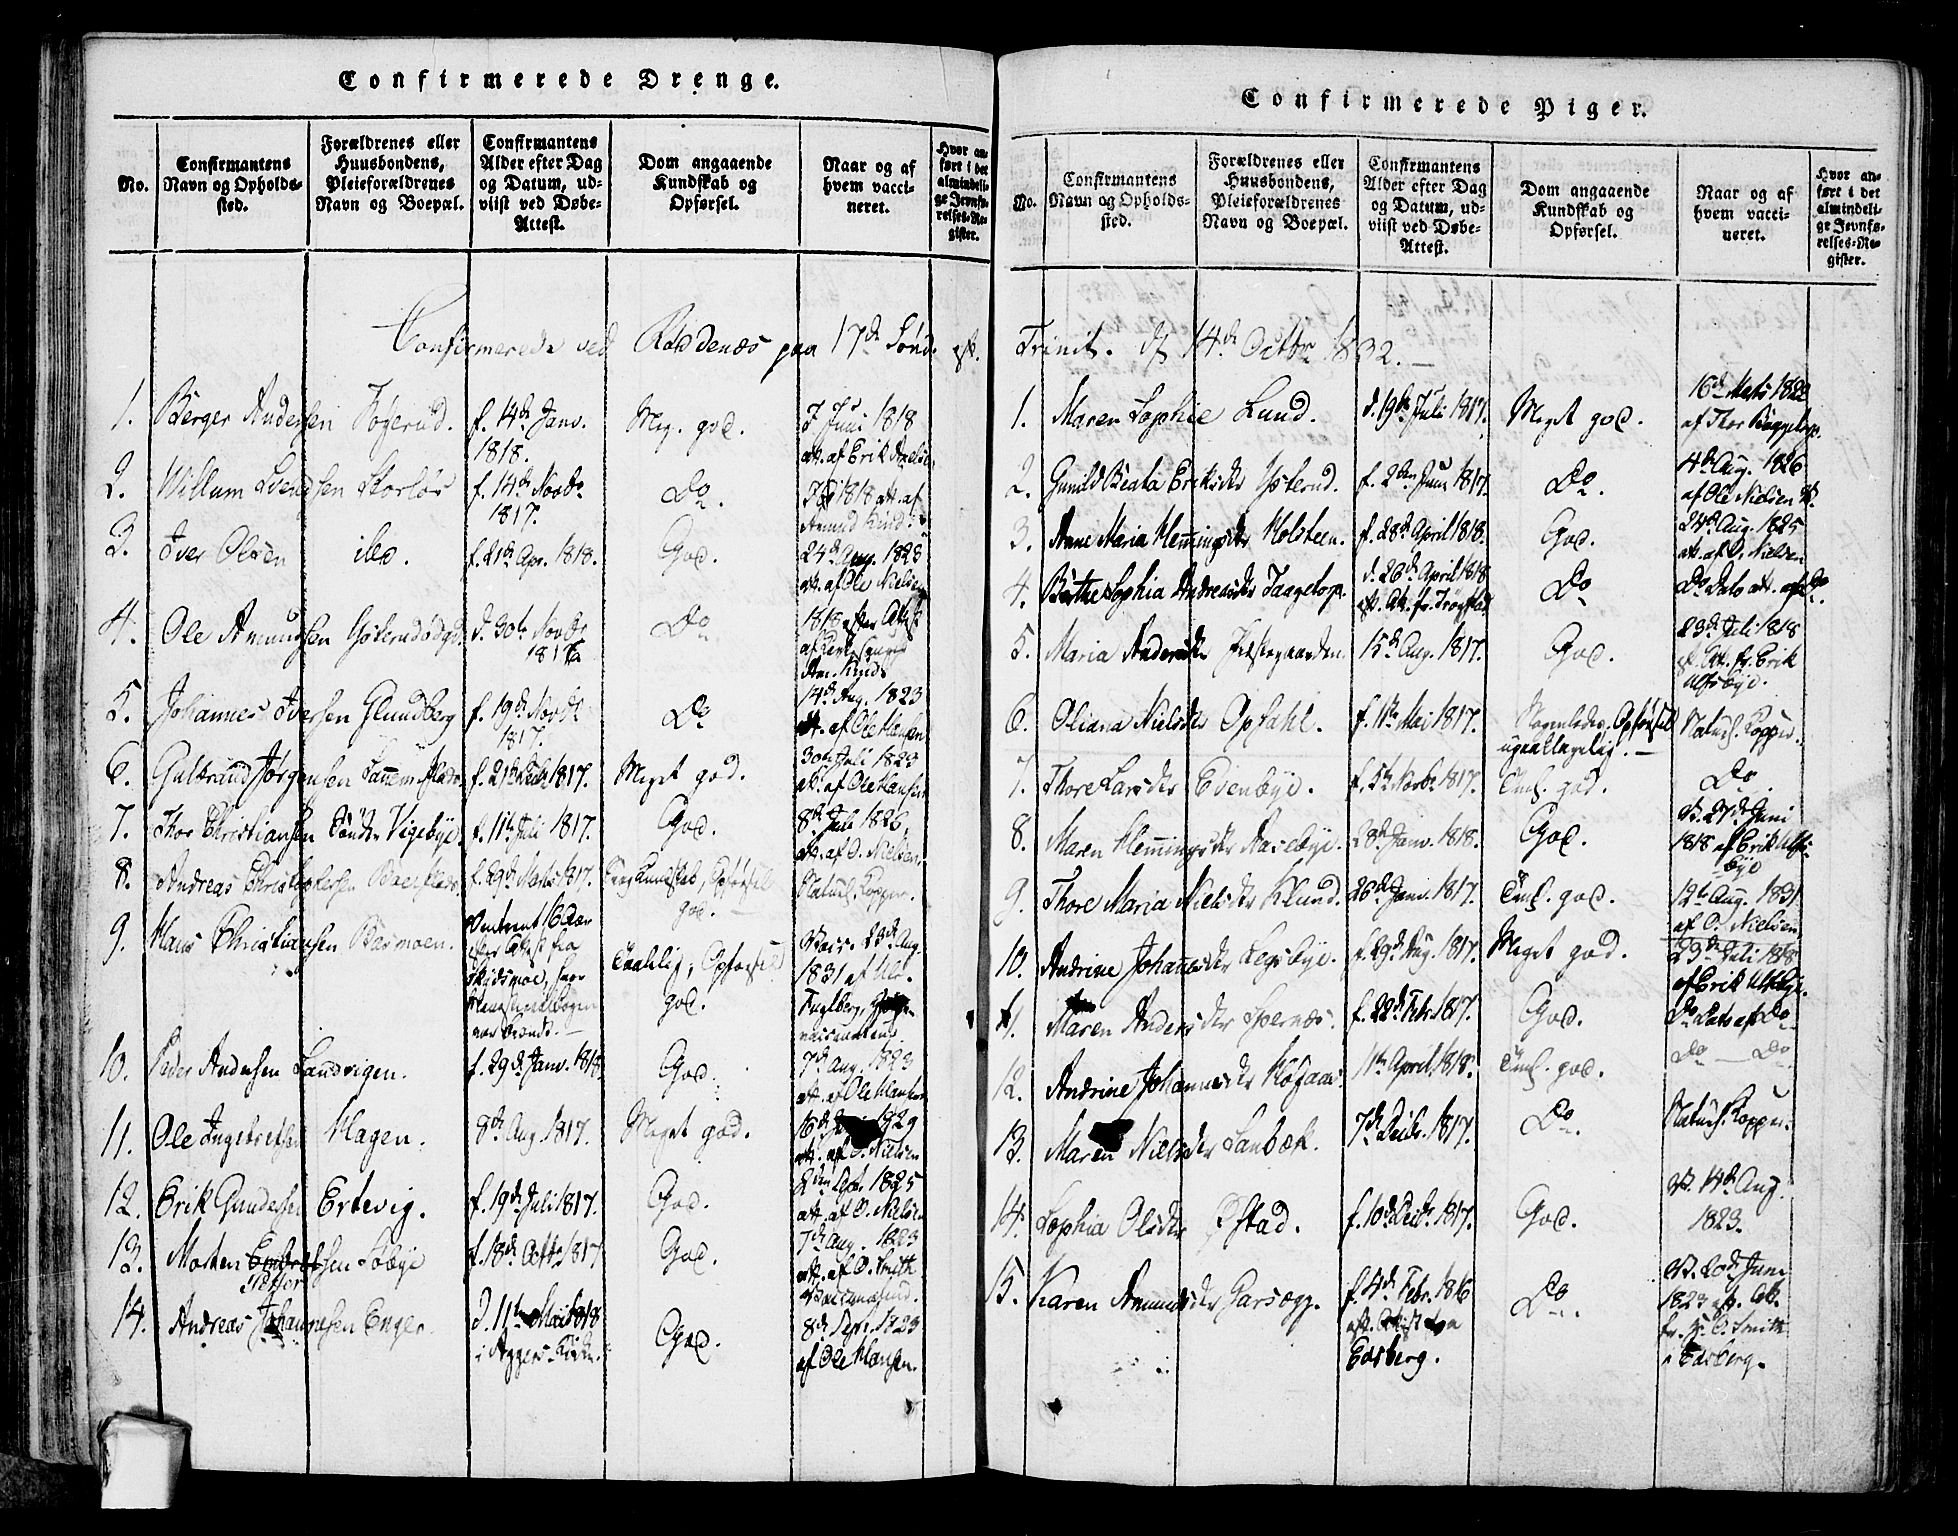 Confirmerede Drenge.
No.
Confirmantens Navn og Opholds-sted.
Forældrenes eller Huusbondens, Pleieforældrenes Navn og Boepæl.
Confirmantens Alder efter Dag og Datum, ud-viist ved Døbe-Attest.
Dom angaaende Kundskab og Opførsel.
Naar og af hvem vacci-neret.
Hvor an-ført i det almindeli-ge Jevnfø-relses-Re-gister.
Confirmerede ved Rødenæs paa 17de Sønd. eft.
1. Berger Andersen f. 14de Janv. 1818. Meg. god. 7 Juni 1818 att. af Erik
2. Willum Svendsen f. 14de Novbr 1817. Do. 1818 att. af Amund Kind.
3. Iver Olsen ibid. f. 21de Apr. 1818. God. 24de Aug. 1825 att. af Ole Nielsen
4. Ole Amundsen d. 30te Novbr 1817 Do 1818 efter Attest af
5. Johannes Iversen Glundberg f. 19de Novbr 1817. Do 14de Aug. 1823 att. af Ole Hansen
6. Gulbrand Jørgensen f. 21de 1817. Meget god. 30te Juli 1823 att. af Ole Hansen
7. Thor Christiansen Søndre Vigebye. f. 11te Juli 1817. God. 8de Juli 1826, att. af O. Nielsen.
8. Andreas f. 29de Marts 1817. Kundskab, Opførsel god. Naturl. Kopper.
9. Hans Christiansen Basmoen. Omtrent 16 Aar efter Attest fra Taalelig, Opførsel god. Vacc. 23de Aug. 1831 af
10. Peder Andersen Sandvigen. f. 29de Janv. 1818 God. 7de Aug. 1823 att. af Ole Hansen
11. Ole Ingebretsen Hagen. 8de Aug. 1817. Meget god. 16de 1829 att. af O. Nielsen
12. Erik Gundersen Ertevig. f. 19de Juli 1817. God. 2den 1825 att. af O. Nielsen
13. Morten f. 18de Octbr 1817 God. 7de Aug. 1823 att. af O. Smith
14. Andreas Johannesen Enger. d. 11te Mai 1818 i Aggers Kirke. God. 8de Sept. 1823 af Ole Hansen.
Confirmerede Piger.
No.
Confirmantens Navn og Opholds-sted.
Forældrenes eller Huusbondens, Pleieforældrenes Navn og Boepæl.
Confirmantens Alder efter Dag og Datum, ud-viist ved Døbe-Attest.
Dom angaaende Kundskab og Opførsel.
Naar og af hvem vacci-neret.
Hvor an-ført i det almindeli-ge Jevnfø-relses-Re-gister.
Trinit. d. 14de Octbr 1832.
1. Maren Sophie Lund. d. 19de Juli 1817. Meget god. 16de Marts 1822 af Thor
2. Gunild Beata Eriksdtr Ysterud. f. 2den Juni 1817. Do. 4de Aug. 1826 af Ole Nielsen
3. Anne Maria Hemmingsdtr Holsteen. f. 28de April 1818. God. 24de Aug. 1825 att. af O. Nielsen
4. Berthe Sophia Andreasdtr d. 26de April 1818 eft. Att. fr. Trøgstad Do Do Dato att. af Do
5. Maria Andersdtr Præstegaarden. 15de Aug. 1817. God. 23de Juli 1818 eft. Att. fr. Erik Ulfsbye.
6. Oliana Nielsdtr Opsahl. f. 11te Mai 1817. Opførsel upaaklagelig. Naturl. Kopper.
7. Thore Larsdtr Evenbye. f. 5te Novbr 1817. Teml. god. Do
8. Maren Hemmingsdtr Aasebye. 28de Janv. 1818. God. V. 27de Juni 1818 af Erik Ulfs-bye
9. Thore Maria Nielsdtr Klund. 26de Janv. 1817. Teml. god. 12te Aug. 1831 af O. Nielsen
10. Andrine Johannesdtr Legsbye. f. 29de Aug. 1817. Meget god. 23de Juli 1818 af Erik Ulfsbye.
11. Maren Andersdtr f. 22de Febr. 1817. God. Do Dato af Do
12. Andrine Johannesdtr 11te April 1818. Teml. god. Do — Do
13. Maren Nielsdtr Sanbæk. 7de Decbr. 1817. Do. Naturl. Kopper.
14. Sophia Olsdtr Østad. f. 10de Decbr. 1817. God. V. 14de Aug. 1823.
15. Karen Amundsdtr Garsegg. f. 4de Febr. 1816 eft. Attest fra Edsberg. Do. V. 20de Juni 1823 eft. Att. fr. O. Smith i Edsberg.